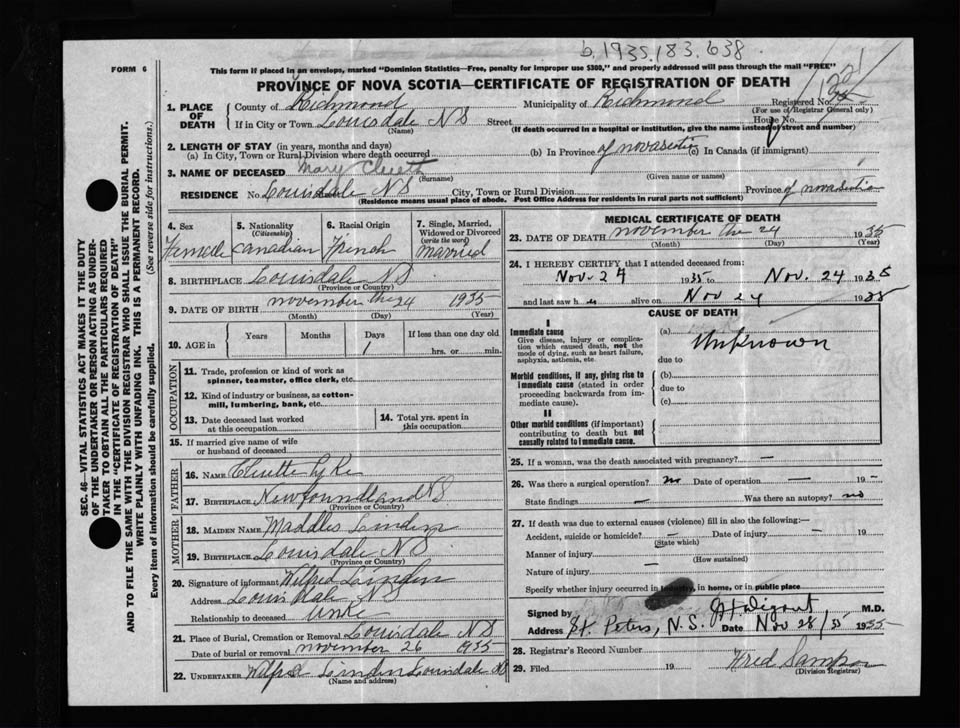 b,1935.183.638.
FORM 6
This form if placed in an envelope, marked "Dominion Statistics—Free, penalty for improper use $300," and properly addressed will pass through the mail "FREE"
PROVINCE OF NOVA SCOTIA—CERTIFICATE OF REGISTRATION OF DEATH
1. PLACE OF DEATH
County of Richmond Municipality of Richmond Registered No.
(For use of Registrar General only)
If in City or Town Louisdale N S Street House No.
(Name) (If death occurred in a hospital or institution, give the name instead of street and number)
2. LENGTH OF STAY (in years, months and days)
(a) In City, Town or Rural Division where death occurred (b) In Province of novascotia (c) In Canada (if immigrant)
3. NAME OF DECEASED Mary Cluett
(Surname) (Given name or names)
RESIDENCE No. Louisdale N S City, Town or Rural Division Province of novascotia
(Residence means usual place of abode. Post Office Address for residents in rural parts not sufficient)
4. Sex Female
5. Nationality (Citizenship) Canadian
6. Racial Origin French
7. Single, Married, Widowed or Divorced (write the word) Married
8. BIRTHPLACE Louisdale N S
(Province or Country)
9. DATE OF BIRTH november the 24 1935
(Month) (Day) (Year)
10. AGE in Years Months Days 1 If less than one day old hrs. or min.
OCCUPATION
11. Trade, profession or kind of work as spinner, teamster, office clerk, etc.
12. Kind of industry or business, as cotton-mill, lumbering, bank, etc.
13. Date deceased last worked at this occupation
14. Total yrs. spent in this occupation
15. If married give name of wife or husband of deceased
FATHER
16. NAME Cluette
17. BIRTHPLACE Newfoundland NS
(Province or Country)
MOTHER
18. MAIDEN NAME Maddles Linden
19. BIRTHPLACE Louisdale N S
(Province or Country)
20. Signature of informant Wilfred Linden
Address Louisdale N S
Relationship to deceased
21. Place of Burial, Cremation or Removal Louisdale N S
Date of burial or removal november 26 1935
22. UNDERTAKER Wilfred Linden Louisdale N S
(Name and address)
MEDICAL CERTIFICATE OF DEATH
23. DATE OF DEATH november the 24 1935
(Month) (Day) (Year)
24. I HEREBY CERTIFY that I attended deceased from:
Nov. 24 1935 to Nov. 24 1935
and last saw h er alive on Nov 24 1935
CAUSE OF DEATH
I
Immediate cause
Give disease, injury or complication which caused death, not the mode of dying, such as heart failure, asphyxia, asthenia, etc.
(a) Unknown
due to
Morbid conditions, if any, giving rise to immediate cause (stated in order proceeding backwards from immediate cause).
(b)
due to
(c)
II
Other morbid conditions (if important) contributing to death but not causally related to immediate cause.
25. If a woman, was the death associated with pregnancy? —
26. Was there a surgical operation? no Date of operation — 19 —
State findings — Was there an autopsy? no
27. If death was due to external causes (violence) fill in also the following:—
Accident, suicide or homicide? — Date of injury — 19
(State which)
Manner of injury
(How sustained)
Nature of injury —
Specify whether injury occurred in industry, in home, or in public place
Signed by M.D.
Address St. Peters, N.S. Date Nov 28/35 1935
28. Registrar's Record Number
29. Filed 19 Fred Sampson
(Division Registrar)
SEC. 46—VITAL STATISTICS ACT MAKES IT THE DUTY
OF THE UNDERTAKER OR PERSON ACTING AS UNDER-
TAKER TO OBTAIN ALL THE PARTICULARS REQUIRED
IN THE "CERTIFICATE OF REGISTRATION OF DEATH"
AND TO FILE THE SAME WITH THE DIVISION REGISTRAR WHO SHALL ISSUE THE BURIAL PERMIT.
WRITE PLAINLY WITH UNFADING INK. THIS IS A PERMANENT RECORD.
Every item of information should be carefully supplied. (See reverse side for instructions.)